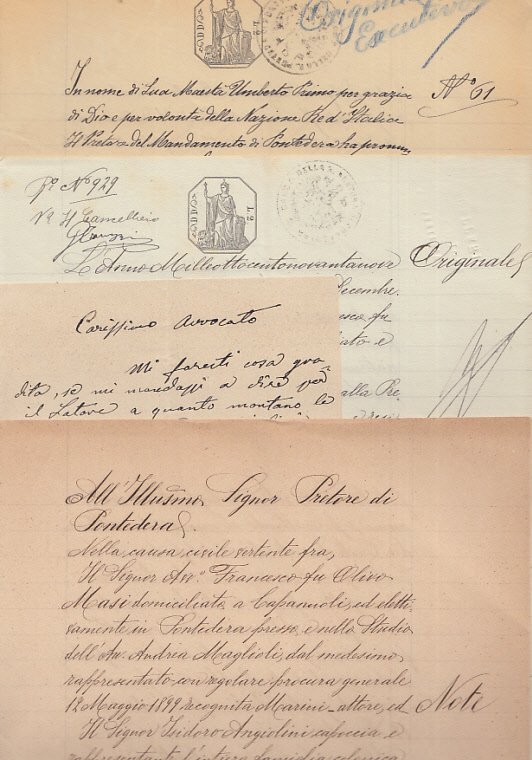 Originale
Esecutivo
L. 2
In nome di Sua Maestà Umberto Primo per grazia
di Dio e per volontà della Nazione Re d'Italia
Il Pretore del Mandamento di Pontedera ha pronun
No 61
No 929
Vo Il Cancelliere
L. 2
L'Anno Milleottocentonovantanove
Originale
Decembre
Carissimo Avvocato
Mi faresti cosa gra
dita, se mi mandassi a dire per
il Latore a quanto montano le
alla Pre
All'Illusmo Signor Pretore di
Pontedera
Nella causa civile vertente fra,
Il Signor Avv.o Francesco fu Olivo
Masi domiciliato a Capannoli, ed eletti
vamente in Pontedera presso, e nello Studio
dell'Av. Andrea Maglioli, dal medesimo
rappresentato con regolare procura generale
12 Maggio 1899 recognita Marini - attore, ed
Note
Il Signor Isidoro Angiolini capoccia e
rappresentante l'intiera famiglia colonica